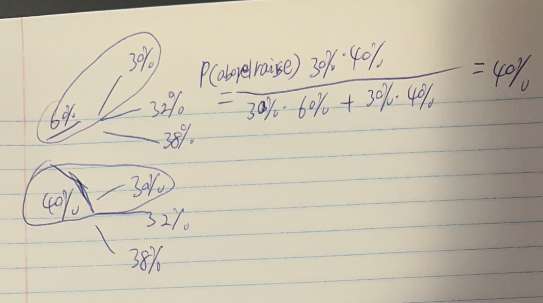 30%
60%
32%
38%
P(above|raise) = 30%·40% / 30%·60% + 30%·40% = 40%
40%
30%
32%
38%